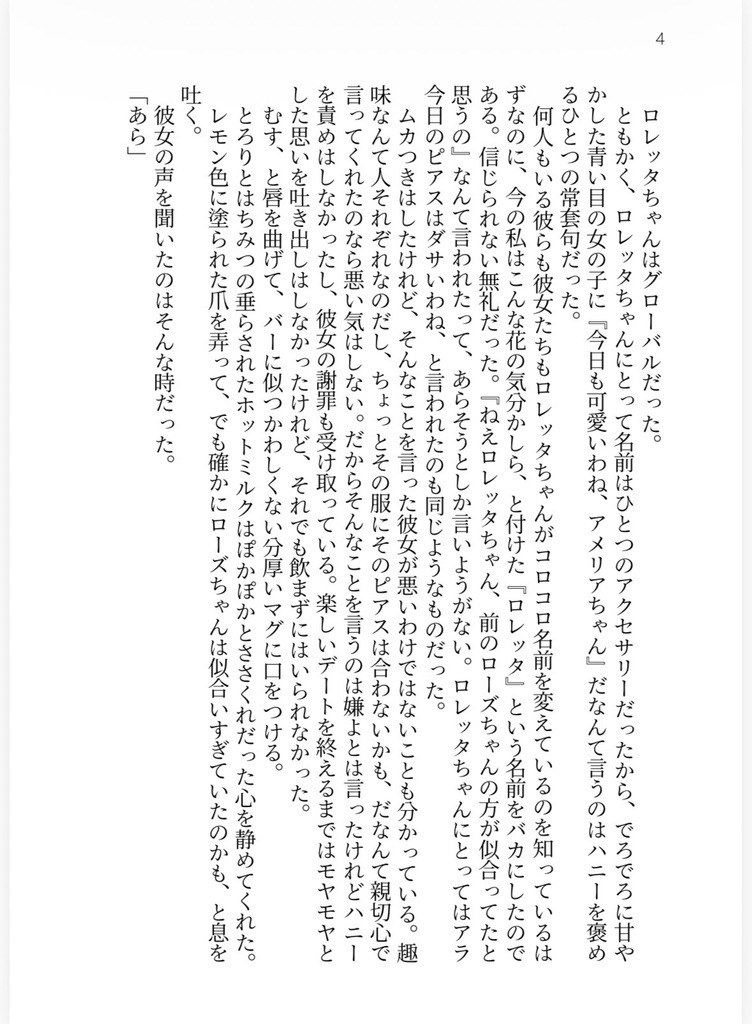 4
ロレッタちゃんはグローバルだった。
ともかく、ロレッタちゃんにとって名前はひとつのアクセサリーだったから、でろでろに甘や
かした青い目の女の子に『今日も可愛いわね、アメリアちゃん』だなんて言うのはハニーを褒め
るひとつの常套句だった。
何人もいる彼らも彼女たちもロレッタちゃんがコロコロ名前を変えているのを知っているは
ずなのに、今の私はこんな花の気分かしら、と付けた『ロレッタ』という名前をバカにしたので
ある。信じられない無礼だった。『ねえロレッタちゃん、前のローズちゃんの方が似合ってたと
思うの』なんて言われたって、あらそうとしか言いようがない。ロレッタちゃんにとってはアラ
今日のピアスはダサいわね、と言われたのも同じようなものだった。
ムカつきはしたけれど、そんなことを言った彼女が悪いわけではないことも分かっている。趣
味なんて人それぞれなのだし、ちょっとその服にそのピアスは合わないかも、だなんて親切心で
言ってくれたのなら悪い気はしない。だからそんなことを言うのは嫌よとは言ったけれどハニー
を責めはしなかったし、彼女の謝罪も受け取っている。楽しいデートを終えるまではモヤモヤと
した思いを吐き出しはしなかったけれど、それでも飲まずにはいられなかった。
むす、と唇を曲げて、バーに似つかわしくない分厚いマグに口をつける。
とろりとはちみつの垂らされたホットミルクはぽかぽかとささくれだった心を静めてくれた。
レモン色に塗られた爪を弄って、でも確かにローズちゃんは似合いすぎていたのかも、と息を
吐く。
彼女の声を聞いたのはそんな時だった。
「あら」